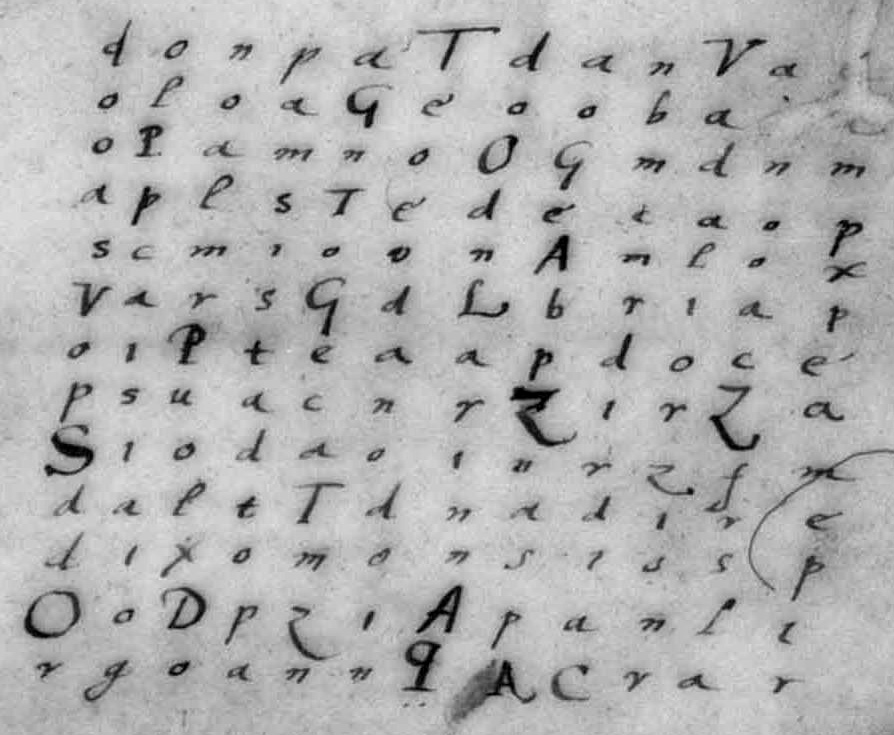 d o n p a T d a n V a
o l o a G e o o b a
o P a m n o O G m d n m
a p l s T e d e t a o p
s c m i o o n A m l o x
V a r s G d L b r i a p
o i P t e a a p d o c e
p s u a c n r Z i r Z a
S i o d a o i n r z f m
d a l t T d n a d i r e
d i x o m o n s i s s p
O o D p z i A p a n l i
r g o a n n q A C r a r